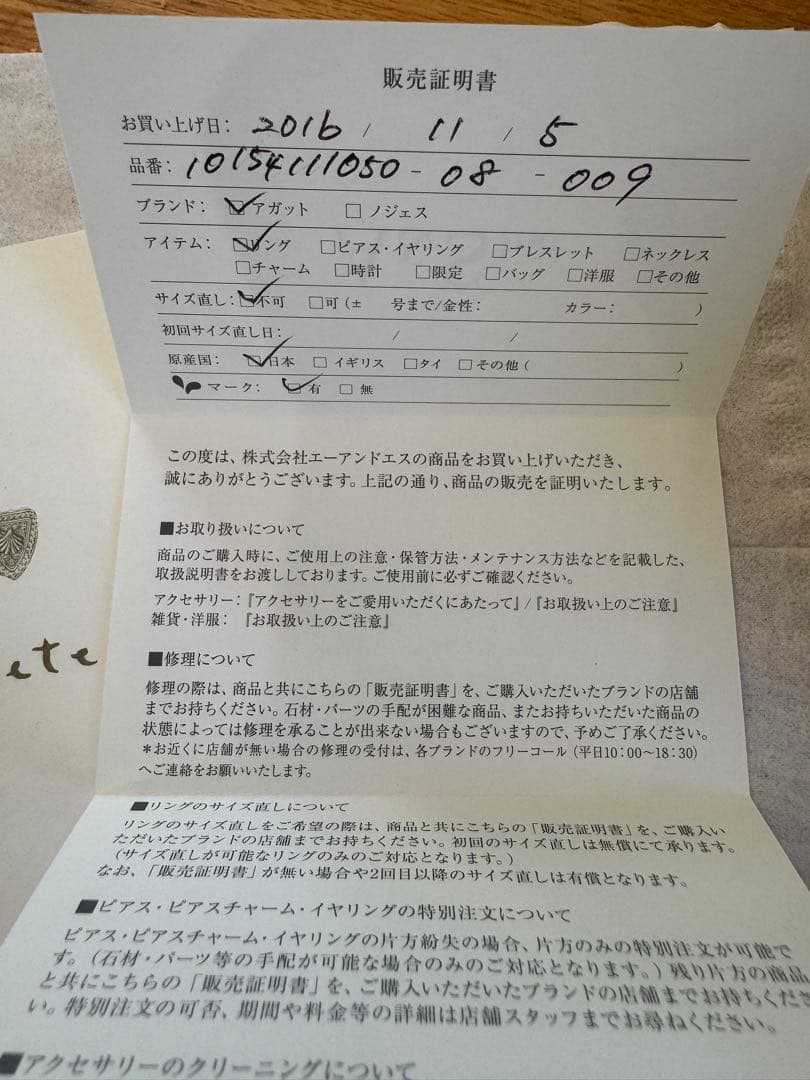 販売証明書
お買い上げ日: 2016 / 11 / 5
品番: 10154111050 - 08 - 009
ブランド: ☑アガット □ノジェス
アイテム: ☑リング □ピアス・イヤリング □ブレスレット □ネックレス
□チャーム □時計 □限定 □バッグ □洋服 □その他
サイズ直し: ☑不可 □可(± 号まで/金性: カラー: )
初回サイズ直し日: / /
原産国: ☑日本 □イギリス □タイ □その他( )
マーク: ☑有 □無
この度は、株式会社エーアンドエスの商品をお買い上げいただき、
誠にありがとうございます。上記の通り、商品の販売を証明いたします。
■お取り扱いについて
商品のご購入時に、ご使用上の注意・保管方法・メンテナンス方法などを記載した、
取扱説明書をお渡ししております。ご使用前に必ずご確認ください。
アクセサリー:『アクセサリーをご愛用いただくにあたって』/『お取扱い上のご注意』
雑貨・洋服: 『お取扱い上のご注意』
ete
■修理について
修理の際は、商品と共にこちらの「販売証明書」を、ご購入いただいたブランドの店舗
までお持ちください。石材・パーツの手配が困難な商品、またお持ちいただいた商品の
状態によっては修理を承ることが出来ない場合もございますので、予めご了承ください。
*お近くに店舗が無い場合の修理の受付は、各ブランドのフリーコール(平日10:00〜18:30)
へご連絡をお願いいたします。
■リングのサイズ直しについて
リングのサイズ直しをご希望の際は、商品と共にこちらの「販売証明書」を、ご購入い
ただいたブランドの店舗までお持ちください。初回のサイズ直しは無償にて承ります。
(サイズ直しが可能なリングのみのご対応となります。)
なお、「販売証明書」が無い場合や2回目以降のサイズ直しは有償となります。
■ピアス・ピアスチャーム・イヤリングの特別注文について
ピアス・ピアスチャーム・イヤリングの片方紛失の場合、片方のみの特別注文が可能で
す。(石材・パーツ等の手配が可能な場合のみのご対応となります。)残り片方の商品
と共にこちらの「販売証明書」を、ご購入いただいたブランドの店舗までお持ちくださ
い。特別注文の可否、期間や料金等の詳細は店舗スタッフまでお尋ねください。
■アクセサリーのクリーニングについて